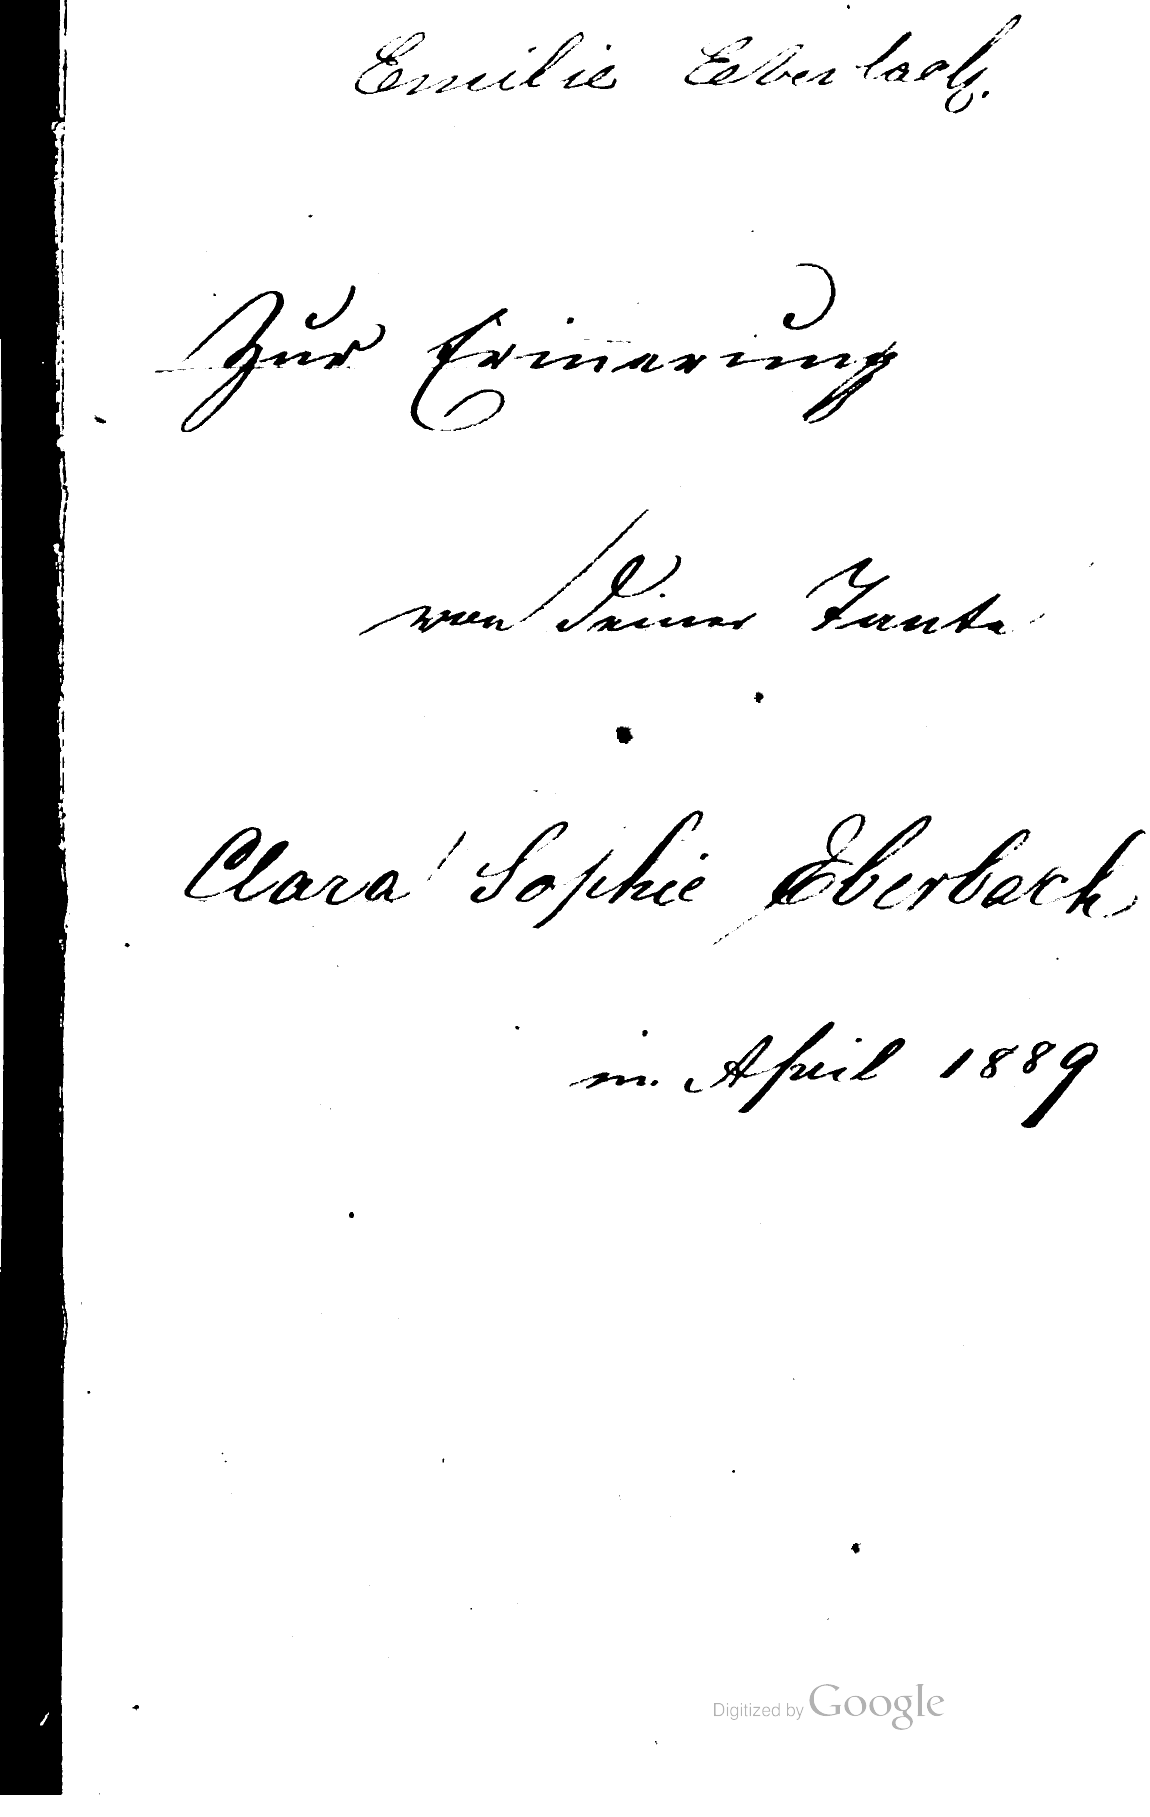 Emilie Eberbach.
Zur Erinerung
von Deiner Tante
Clara Sophie Eberbach
im April 1889
Digitized by Google